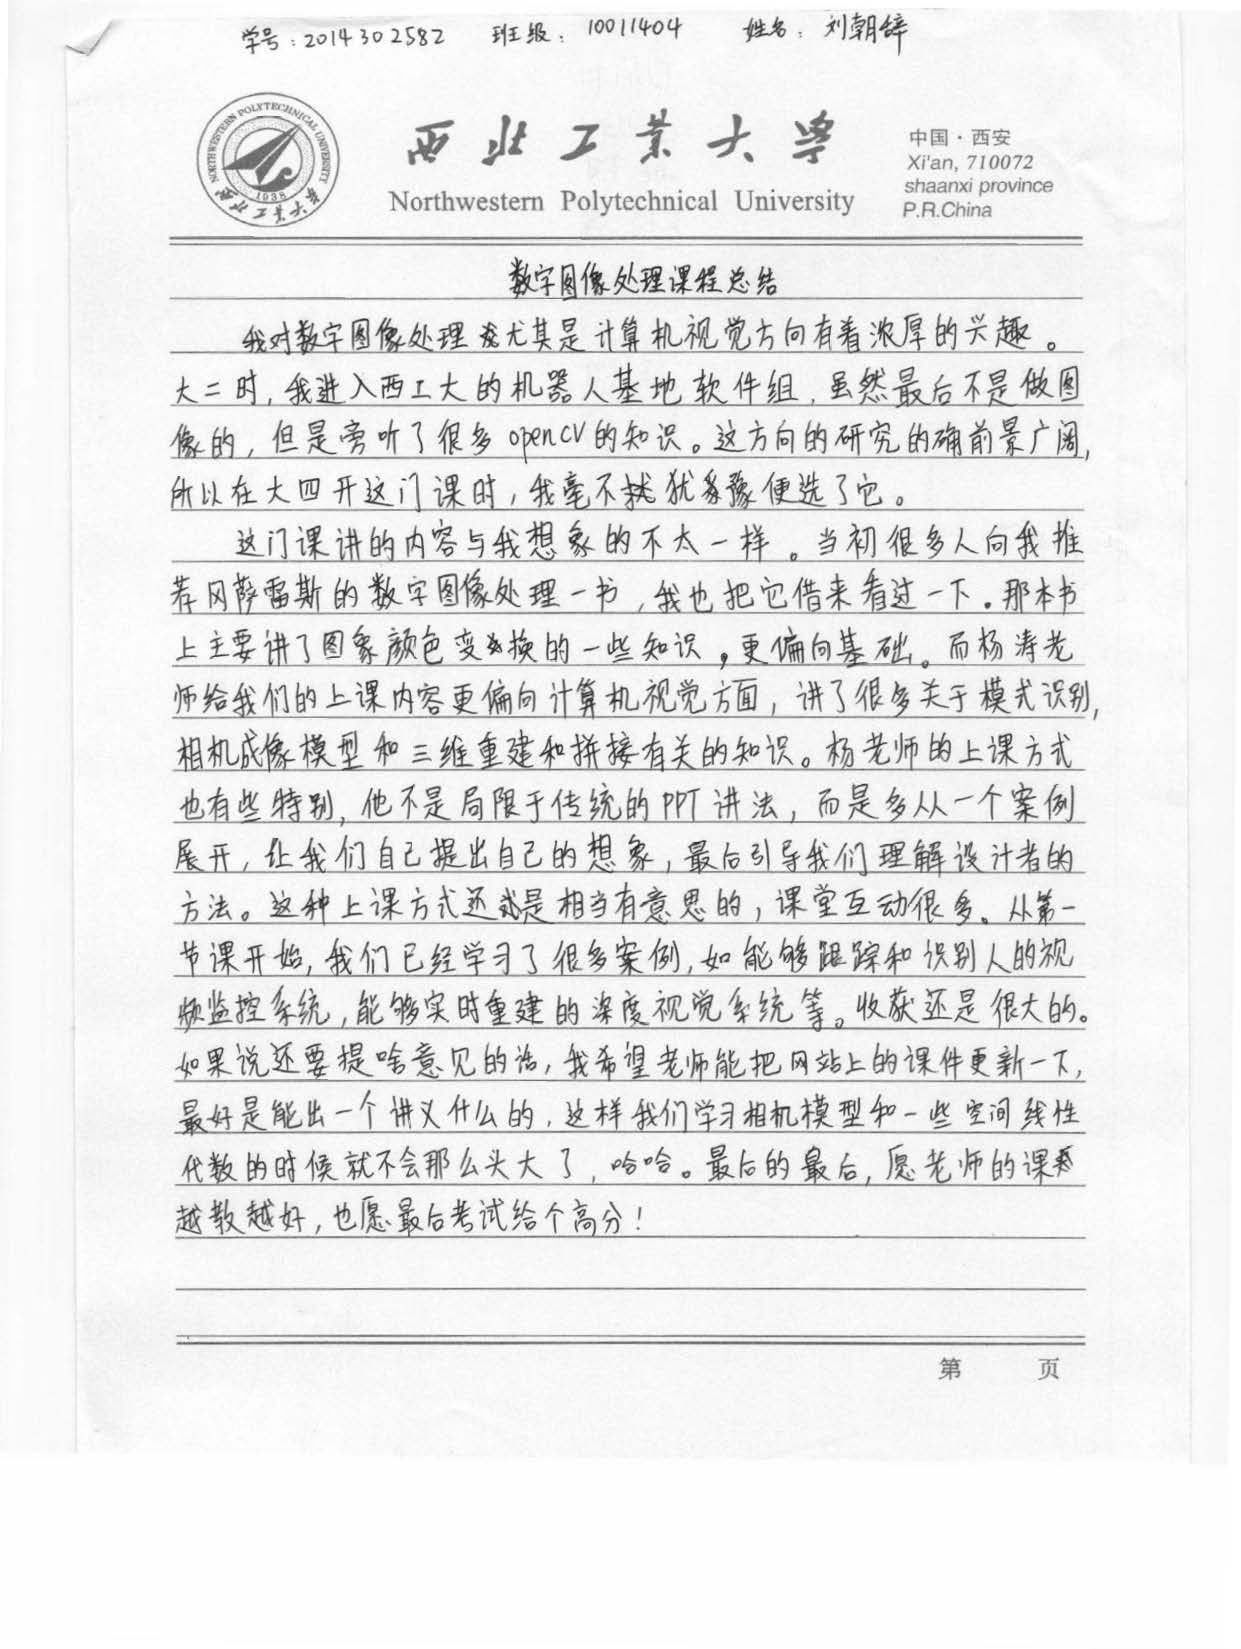 学号：2014302582 班级：10011404 姓名：刘朝辞
NORTHWESTERN POLYTECHNICAL UNIVERSITY
1938
西北工业大学
西北工业大学
Northwestern Polytechnical University
中国·西安
Xi'an, 710072
shaanxi province
P.R.China
数字图像处理课程总结
我对数字图像处理尤其是计算机视觉方向有着浓厚的兴趣。
大二时，我进入西工大的机器人基地软件组，虽然最后不是做图
像的，但是旁听了很多openCV的知识。这方向的研究的确前景广阔，
所以在大四开这门课时，我毫不犹豫便选了它。
这门课讲的内容与我想象的不太一样。当初很多人向我推
荐冈萨雷斯的数字图像处理一书，我也把它借来看过一下。那本书
上主要讲了图象颜色变换的一些知识，更偏向基础。而杨涛老
师给我们的上课内容更偏向计算机视觉方面，讲了很多关于模式识别，
相机成像模型和三维重建和拼接有关的知识。杨老师的上课方式
也有些特别，他不是局限于传统的PPT讲法，而是多从一个案例
展开，让我们自己提出自己的想象，最后引导我们理解设计者的
方法。这种上课方式还是相当有意思的，课堂互动很多。从第一
节课开始，我们已经学习了很多案例，如能够跟踪和识别人的视
频监控系统，能够实时重建的深度视觉系统等。收获还是很大的。
如果说还要提啥意见的话，我希望老师能把网站上的课件更新一下，
最好是能出一个讲义什么的，这样我们学习相机模型和一些空间线性
代数的时候就不会那么头大了，哈哈。最后的最后，愿老师的课
越教越好，也愿最后考试给个高分！
第 页